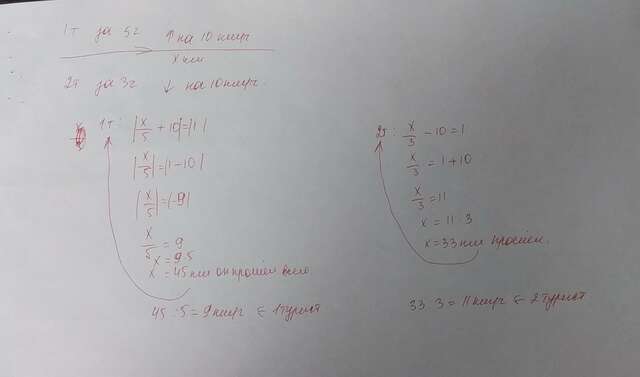 1т за 5ч ↑ на 10 км/ч
x км
2т за 3ч ↓ на 10 км/ч.
1т: |x/5 + 10| = |1|
|x/5| = |1 - 10|
|x/5| = |-9|
x/5 = 9
x = 9·5
x = 45 км он прошёл всего.
45 : 5 = 9 км/ч ← 1 турист
2т: x/3 - 10 = 1
x/3 = 1 + 10
x/3 = 11
x = 11·3
x = 33 км прошёл.
33 : 3 = 11 км/ч ← 2 турист